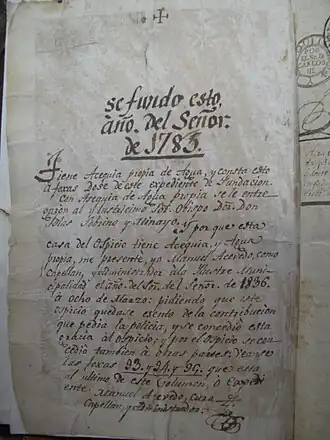 se fundo esto,
año. del Señor.
de 1783.
Tiene Acequia propia de Agua, y consta esto
a foxas Dose de este expediente de Fundacion
Con Acequia de Agua propia se le entre
al Yllustrisimo Sor. Obispo Dor. Don
Sobrino y Minayo. Y por que esta
casa del Ospicio tiene Acequia, y Agua
propia, me presente, yo Manuel Acevedo, como
Capellan, y administrador a la Ilustre Muni
cipalidad el año del Sor. del Señor. de 1836.
à Ocho de Marzo: pidiendo que este
ospicio quedase esento de la contribucion
que pedia la policia, y se concedio esta
gracia al ospicio; y por el Ospicio se con
cedio tambien à otras partes. Vean se
las foxas 93. y 94. y 96. que esta
al ultimo de este Volumen, ò Expedi
ente. Manuel Acevedo, Cura
Capellan, y administrador.
POR
EL
CARLOS
III